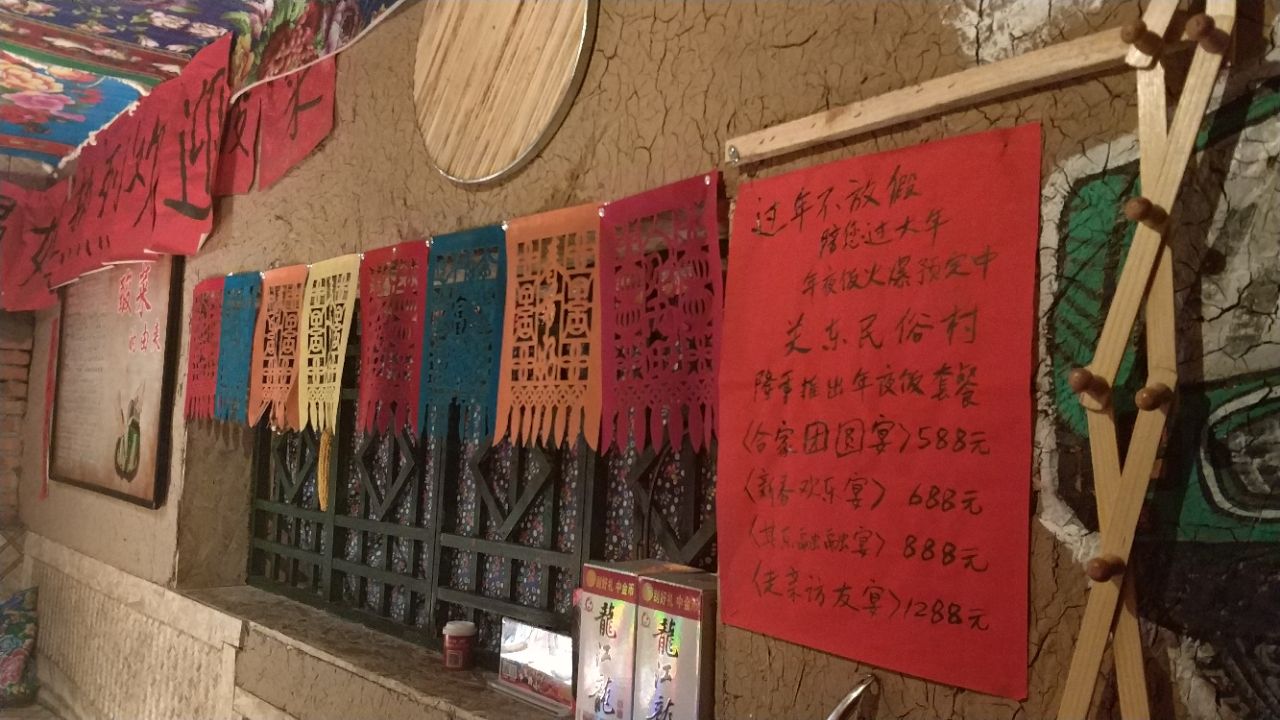 热烈欢迎
菜
蔬菜
的由来
过年不放假
陪您过大年
年夜饭火爆预定中
关东民俗村
隆重推出年夜饭套餐
〈合家团圆宴〉588元
〈新春欢乐宴〉688元
〈其乐融融宴〉888元
〈走亲访友宴〉1288元
刮好礼 中金币
龍江龍
刮好礼 中金币
龍江龍